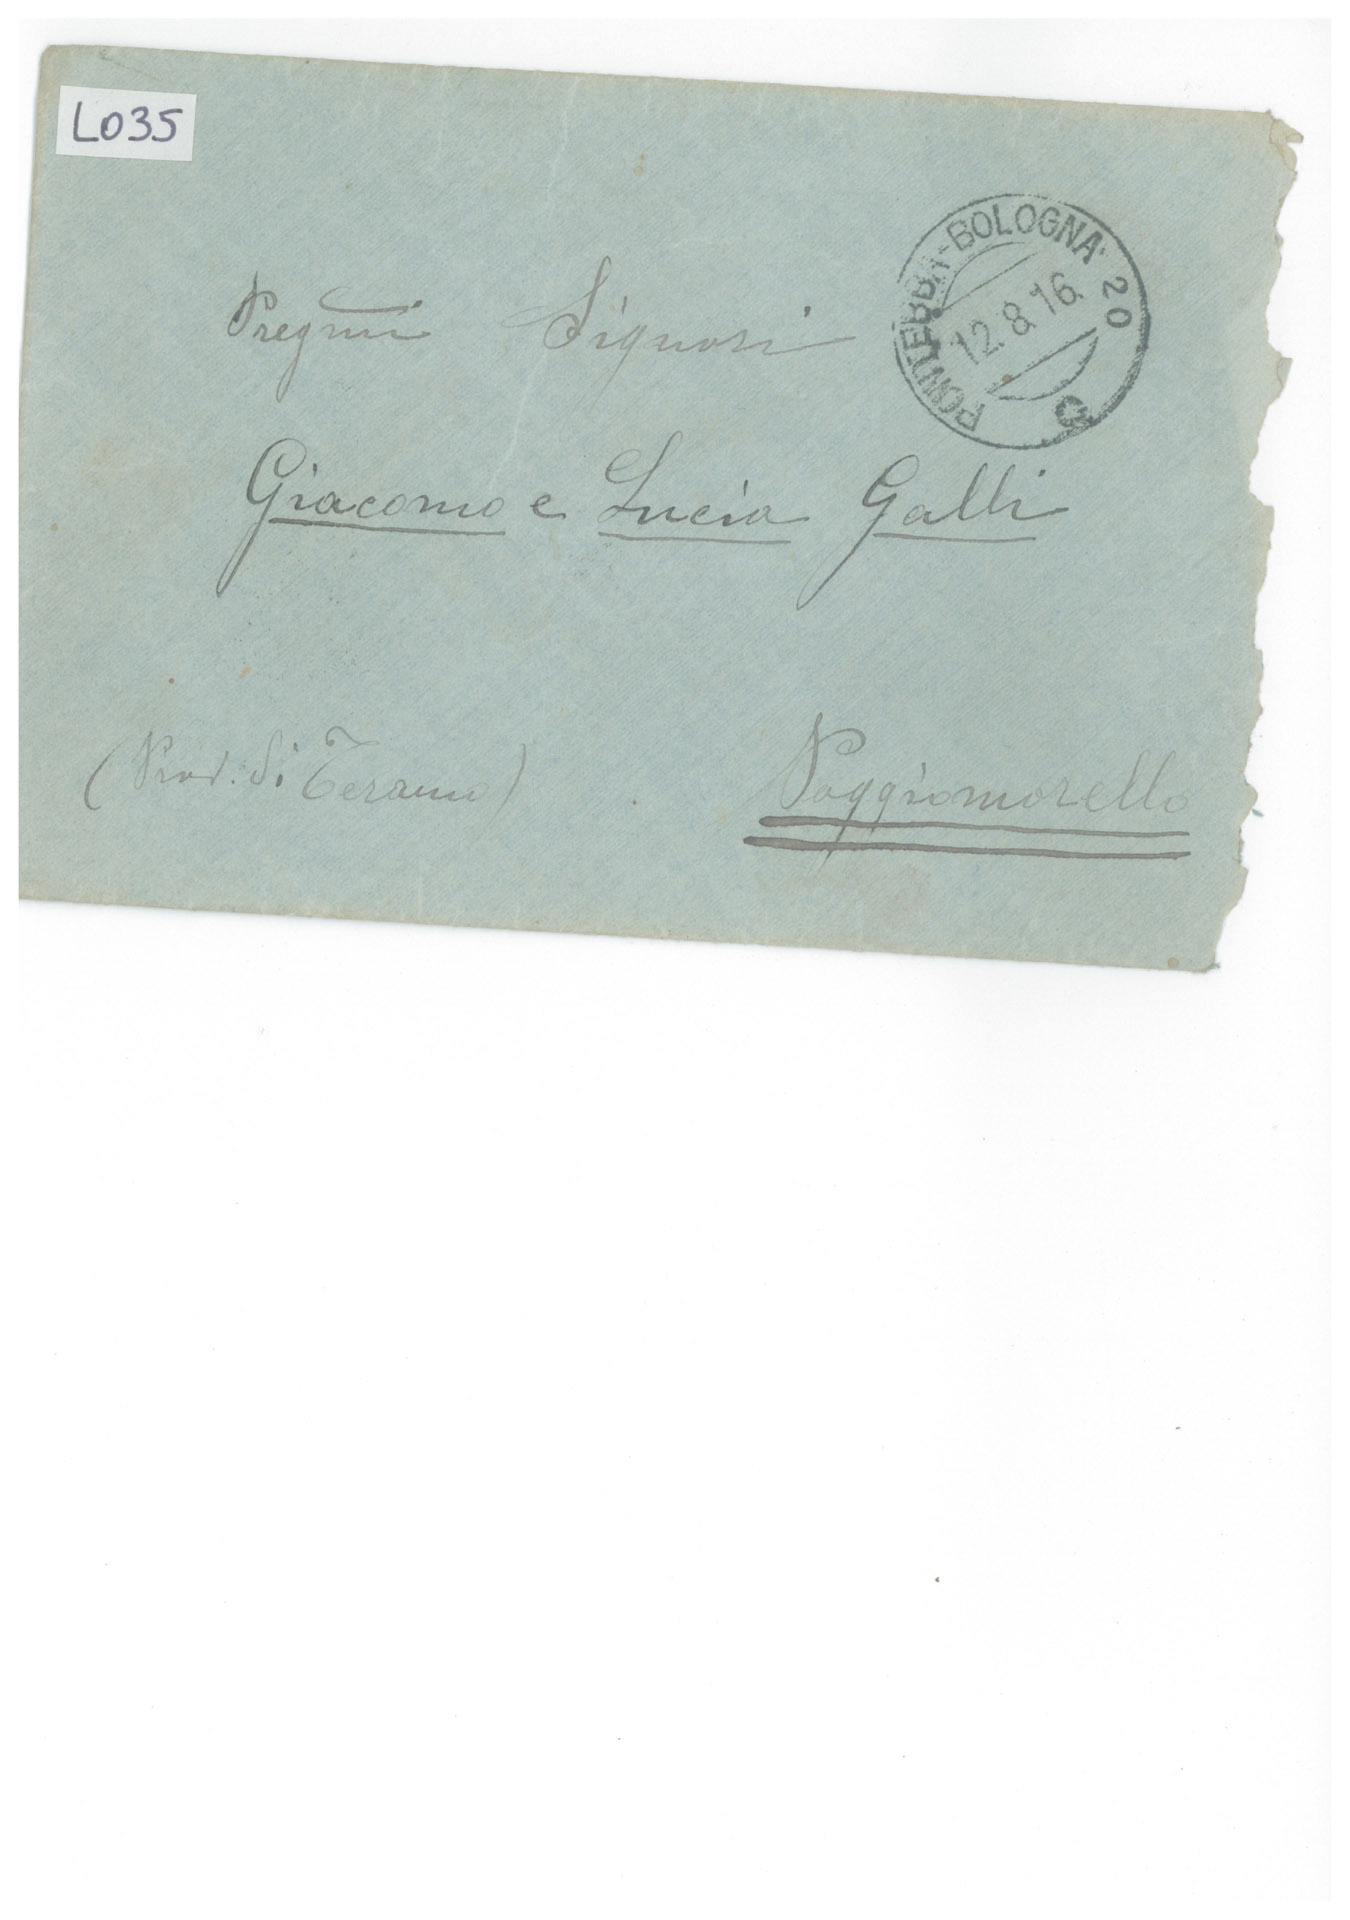 L035
PONTEBBA-BOLOGNA 20
12.8.16
Pregmi Signori
Giacomo e Lucia Galli
(Prov. di Teramo)
Poggiomorello